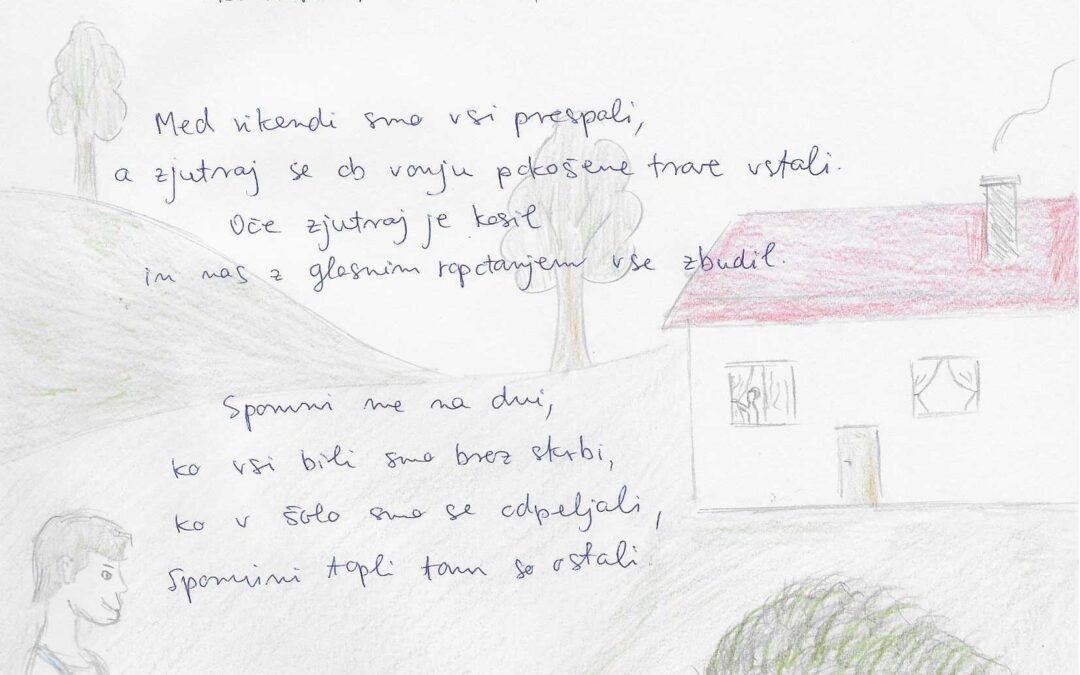 Med vikendi smo vsi prespali,
a zjutraj še ob vonju pokošene trave vstali.
Oče zjutraj je kosil
in nas z glasnim ropotanjem vse zbudil.
Spomni me na dni,
ko vsi bili smo brez skrbi,
ko v šolo smo se odpeljali,
spomini topli tam so ostali.